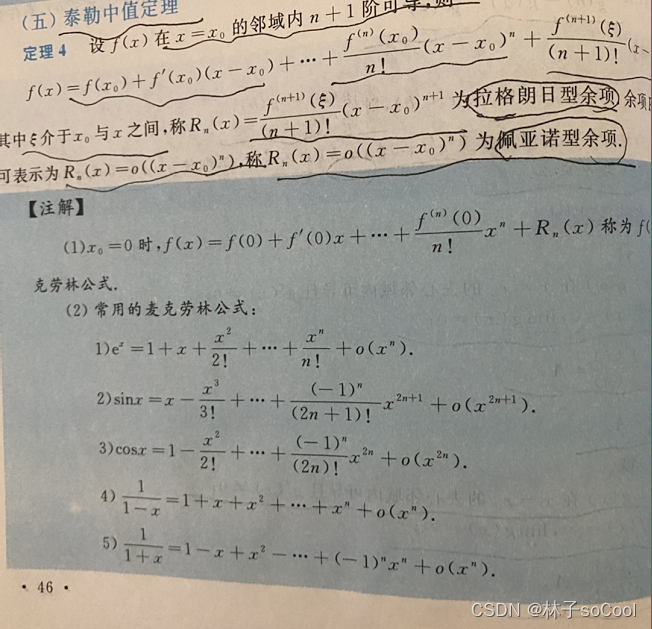 (五) 泰勒中值定理
定理 4 设 f(x) 在 x=x₀ 的邻域内 n+1 阶可导,则
f(x)=f(x₀)+f′(x₀)(x−x₀)+⋯+\frac{f^{(n)}(x₀)}{n!}(x−x₀)ⁿ+\frac{f^{(n+1)}(ξ)}{(n+1)!}(x−
其中 ξ 介于 x₀ 与 x 之间,称 Rₙ(x)=\frac{f^{(n+1)}(ξ)}{(n+1)!}(x−x₀)ⁿ⁺¹ 为拉格朗日型余项 余项
可表示为 Rₙ(x)=o((x−x₀)ⁿ),称 Rₙ(x)=o((x−x₀)ⁿ) 为佩亚诺型余项.
【注解】
(1) x₀=0 时, f(x)=f(0)+f′(0)x+⋯+\frac{f^{(n)}(0)}{n!}xⁿ+Rₙ(x) 称为 f(
克劳林公式.
(2) 常用的麦克劳林公式:
1) eˣ=1+x+\frac{x²}{2!}+⋯+\frac{xⁿ}{n!}+o(xⁿ).
2) sinx=x−\frac{x³}{3!}+⋯+\frac{(−1)ⁿ}{(2n+1)!}x²ⁿ⁺¹+o(x²ⁿ⁺¹).
3) cosx=1−\frac{x²}{2!}+⋯+\frac{(−1)ⁿ}{(2n)!}x²ⁿ+o(x²ⁿ).
4) \frac{1}{1−x}=1+x+x²+⋯+xⁿ+o(xⁿ).
5) \frac{1}{1+x}=1−x+x²−⋯+(−1)ⁿxⁿ+o(xⁿ).
• 46 •
CSDN @林子soCool